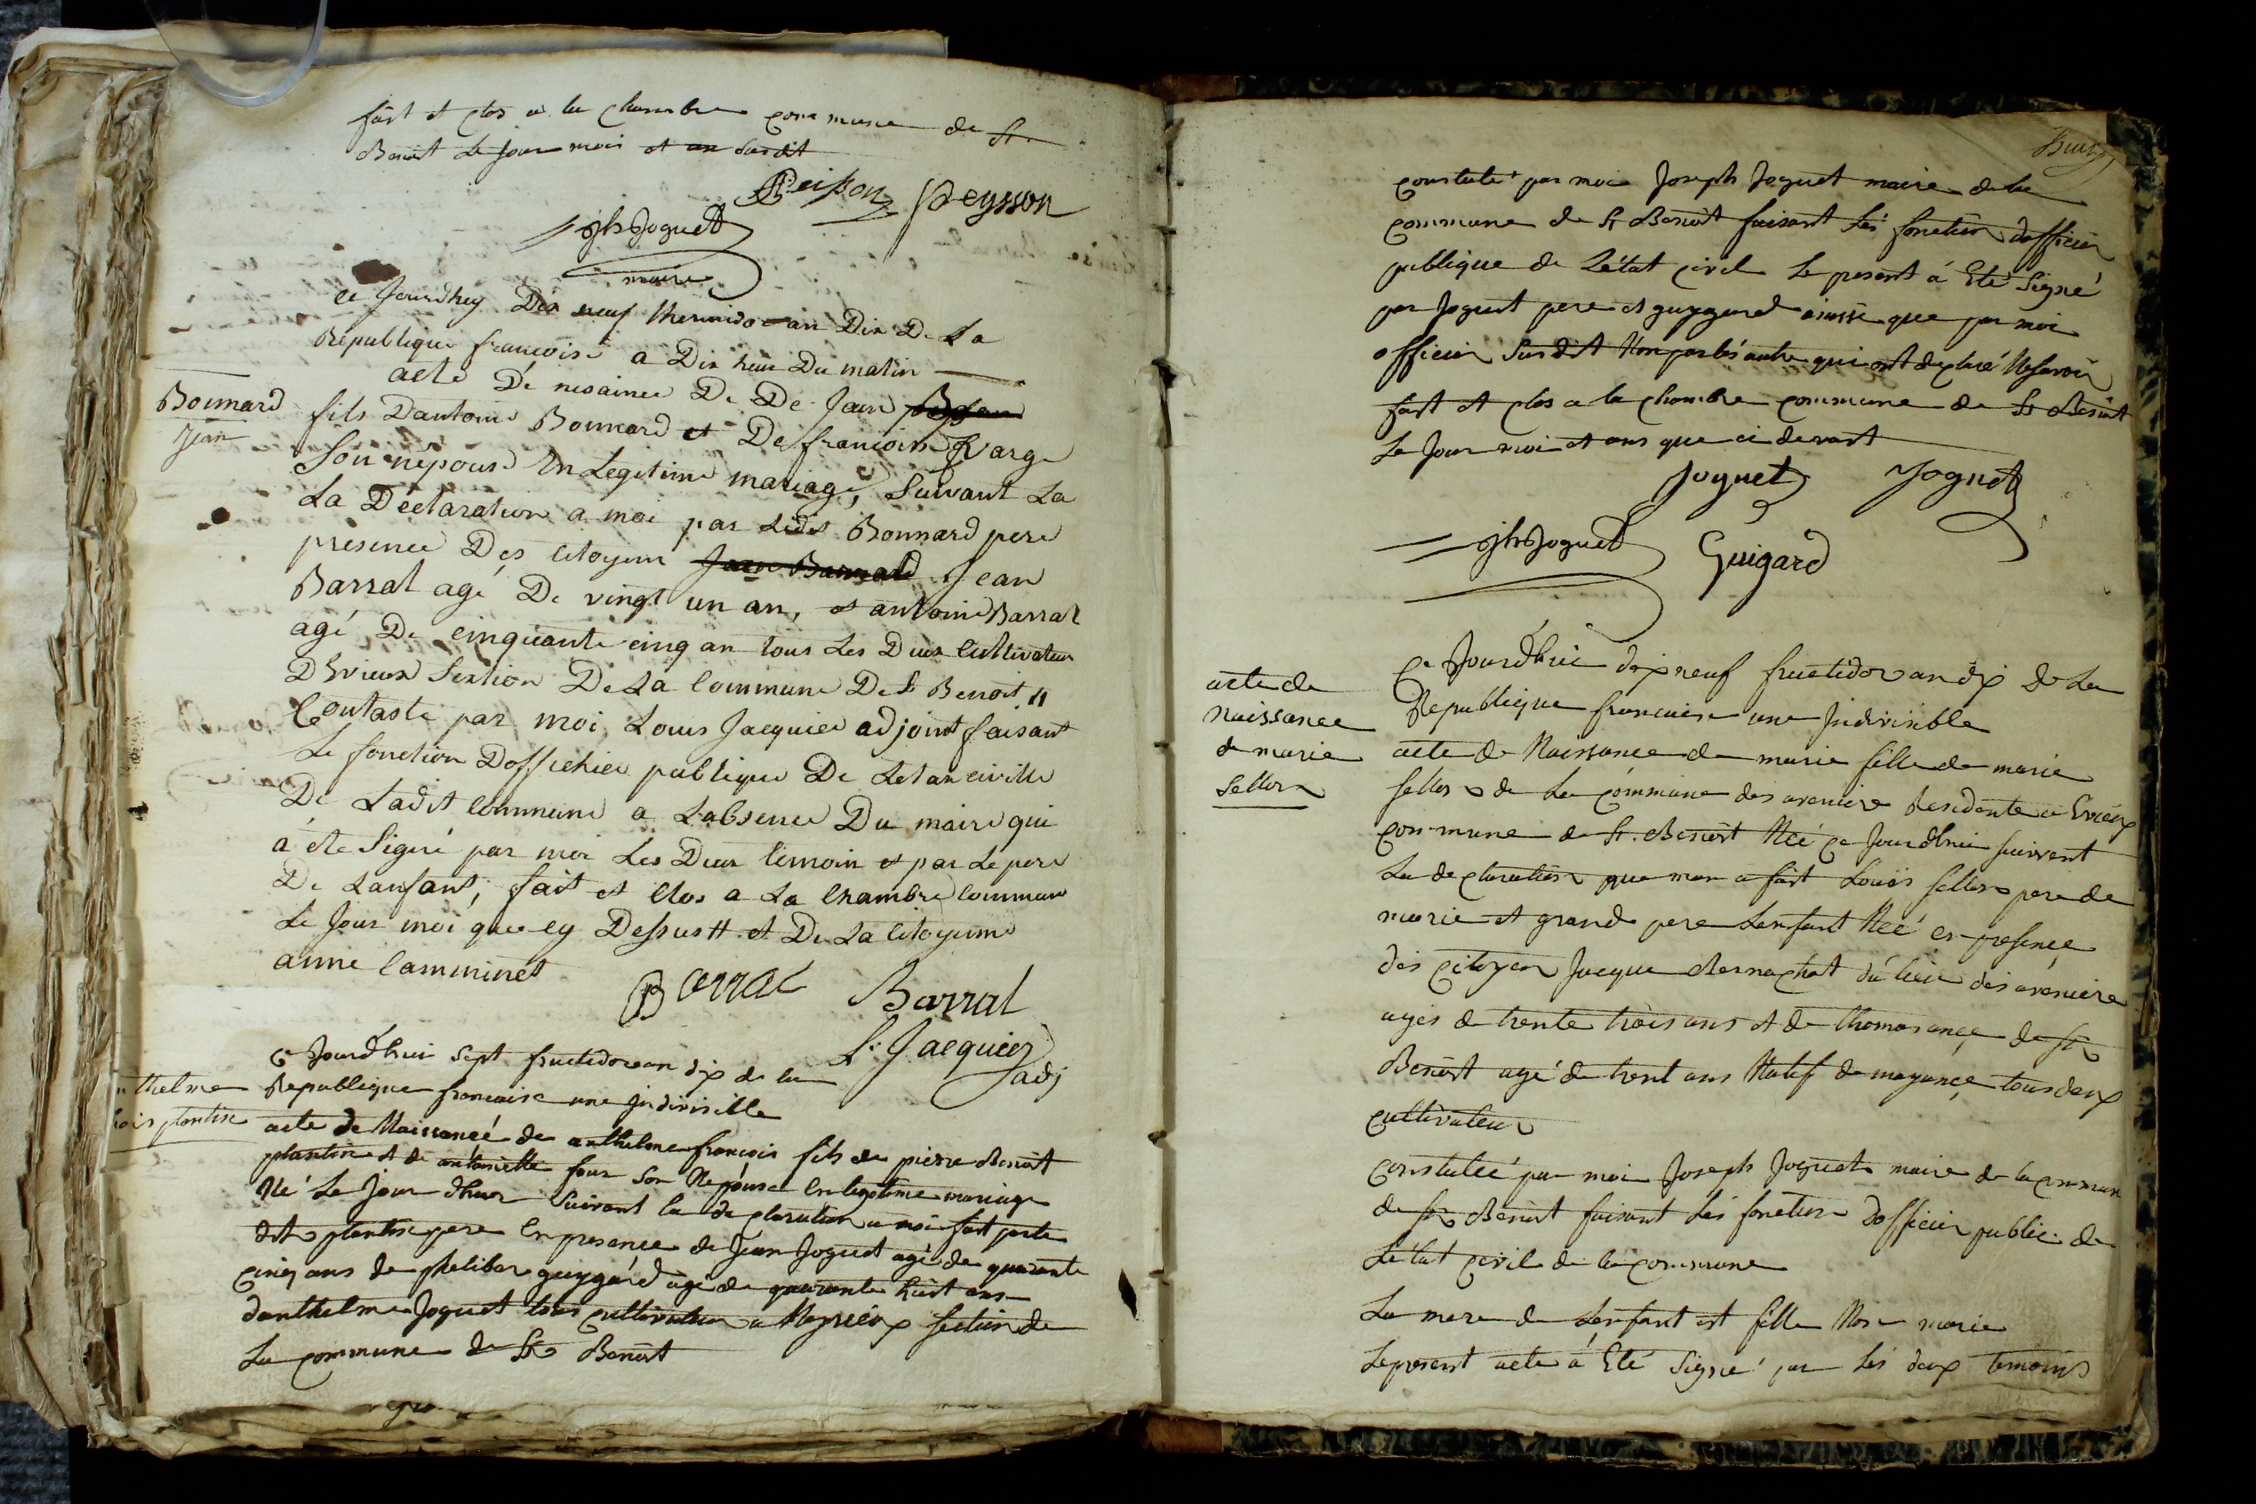 fait et clos a la chambre commune de St.
Benoit Le jour mois et an susdit
Peisson Peysson
jh Joguet
maire
ce Jourdhuy Dix neuf thermido an Dix De La
Republique francoise a Dix heure Du matin
acte De nesaince De De Jean
Bonnard
Jean
fils Dantoine Bonnard et De francoise Varge
Son népouse En Legitime mariage, Suivant La
La Déclaration a moi par Ledit Bonnard pere
presence Des Citoyens Jean Barnard Jean
Barral agé De vingt un an, et antoine Barral
agé De cinquante cinq an tous Les Deux Cultivateur
Dhvieux Section De La Commune De St Benoit
Contasté par moi Louis Jacquier adjoint faisant
Le fonction Doffichier publique De Letan civille
De Ladit Commune a Labsence Du maire qui
a éte Signé par moi Les Deux temoin et par Le pere
De Lanfant; fait et Clos a La Chambre Commune
Le Jour moi que cy Dessus et De La Citoyenne
anne Camminet
Barral Barral
L. Jacquier
adj
Ce Jourdhui sept fructidor an dix de la
Republique francaise une Indivisible
thelme
ois plantin
acte de Naissancé de anthelme francois fils de pierre Benoit
plantin et de antoinette four Son Nepouse En legitime mariage
Né Le Jour dhier Suivant la declaration a moi fait par le
dit plantin pere En presence de Jean Joguet agé de quarante
cinq ans de philiber guygard agé de quarante huit ans
danthelme Joguet tous cultivateur a Meyrieux section de
La commune de St Benoit
constaté par moi Joseph Joguet maire de la
commune de St Benoit faisant Les fonction dofficier
publique de Létat civil Le present á Eté Signé
par Joguet pere et guygard ainssi que par moi
officier Susdit Non par les autre qui ont declaré Ne savoir
fait et clos a la chambre commune de St Benoit
Le Jour moi et ans que ci devant
Joguet Joguet
jh Joguet Guigard
acte de
Naissance
de marie
sellos
Ce Jourdhui dix neuf fructidor an dix de La
Republique francaise une Indivisible
acte de Naissance de marie fille de marie
sellos de La commune des aveniere Residente a Evrieux
commune de St. Benoit Née ce Jourdhui suivent
La declaration que man a fait Louis sellos pere de
marie et grand pere Lenfant Née en presence
des citoyen Jacque Bernachot du lieu des aveniere
agés de trente trois ans et de thomas ance de St
Benoit agé de trent ans Natif de mayance tous deux
cultivateur
Constatée par moi Joseph Joguet maire de la commun
de St Benoit faisant Les fonction dofficier public de
Létat civil de la commune
La mere de Lenfant est fille Non marie
Le present acte á Eté Signé par Les deux temoins